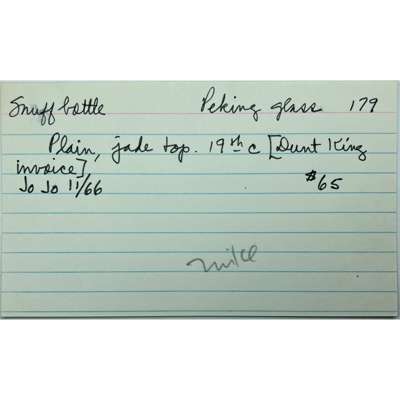 Snuff bottle Peking glass 179
Plain, jade top. 19th c [Dunt King
invoice]
Jo Jo 11/66 $65
mike